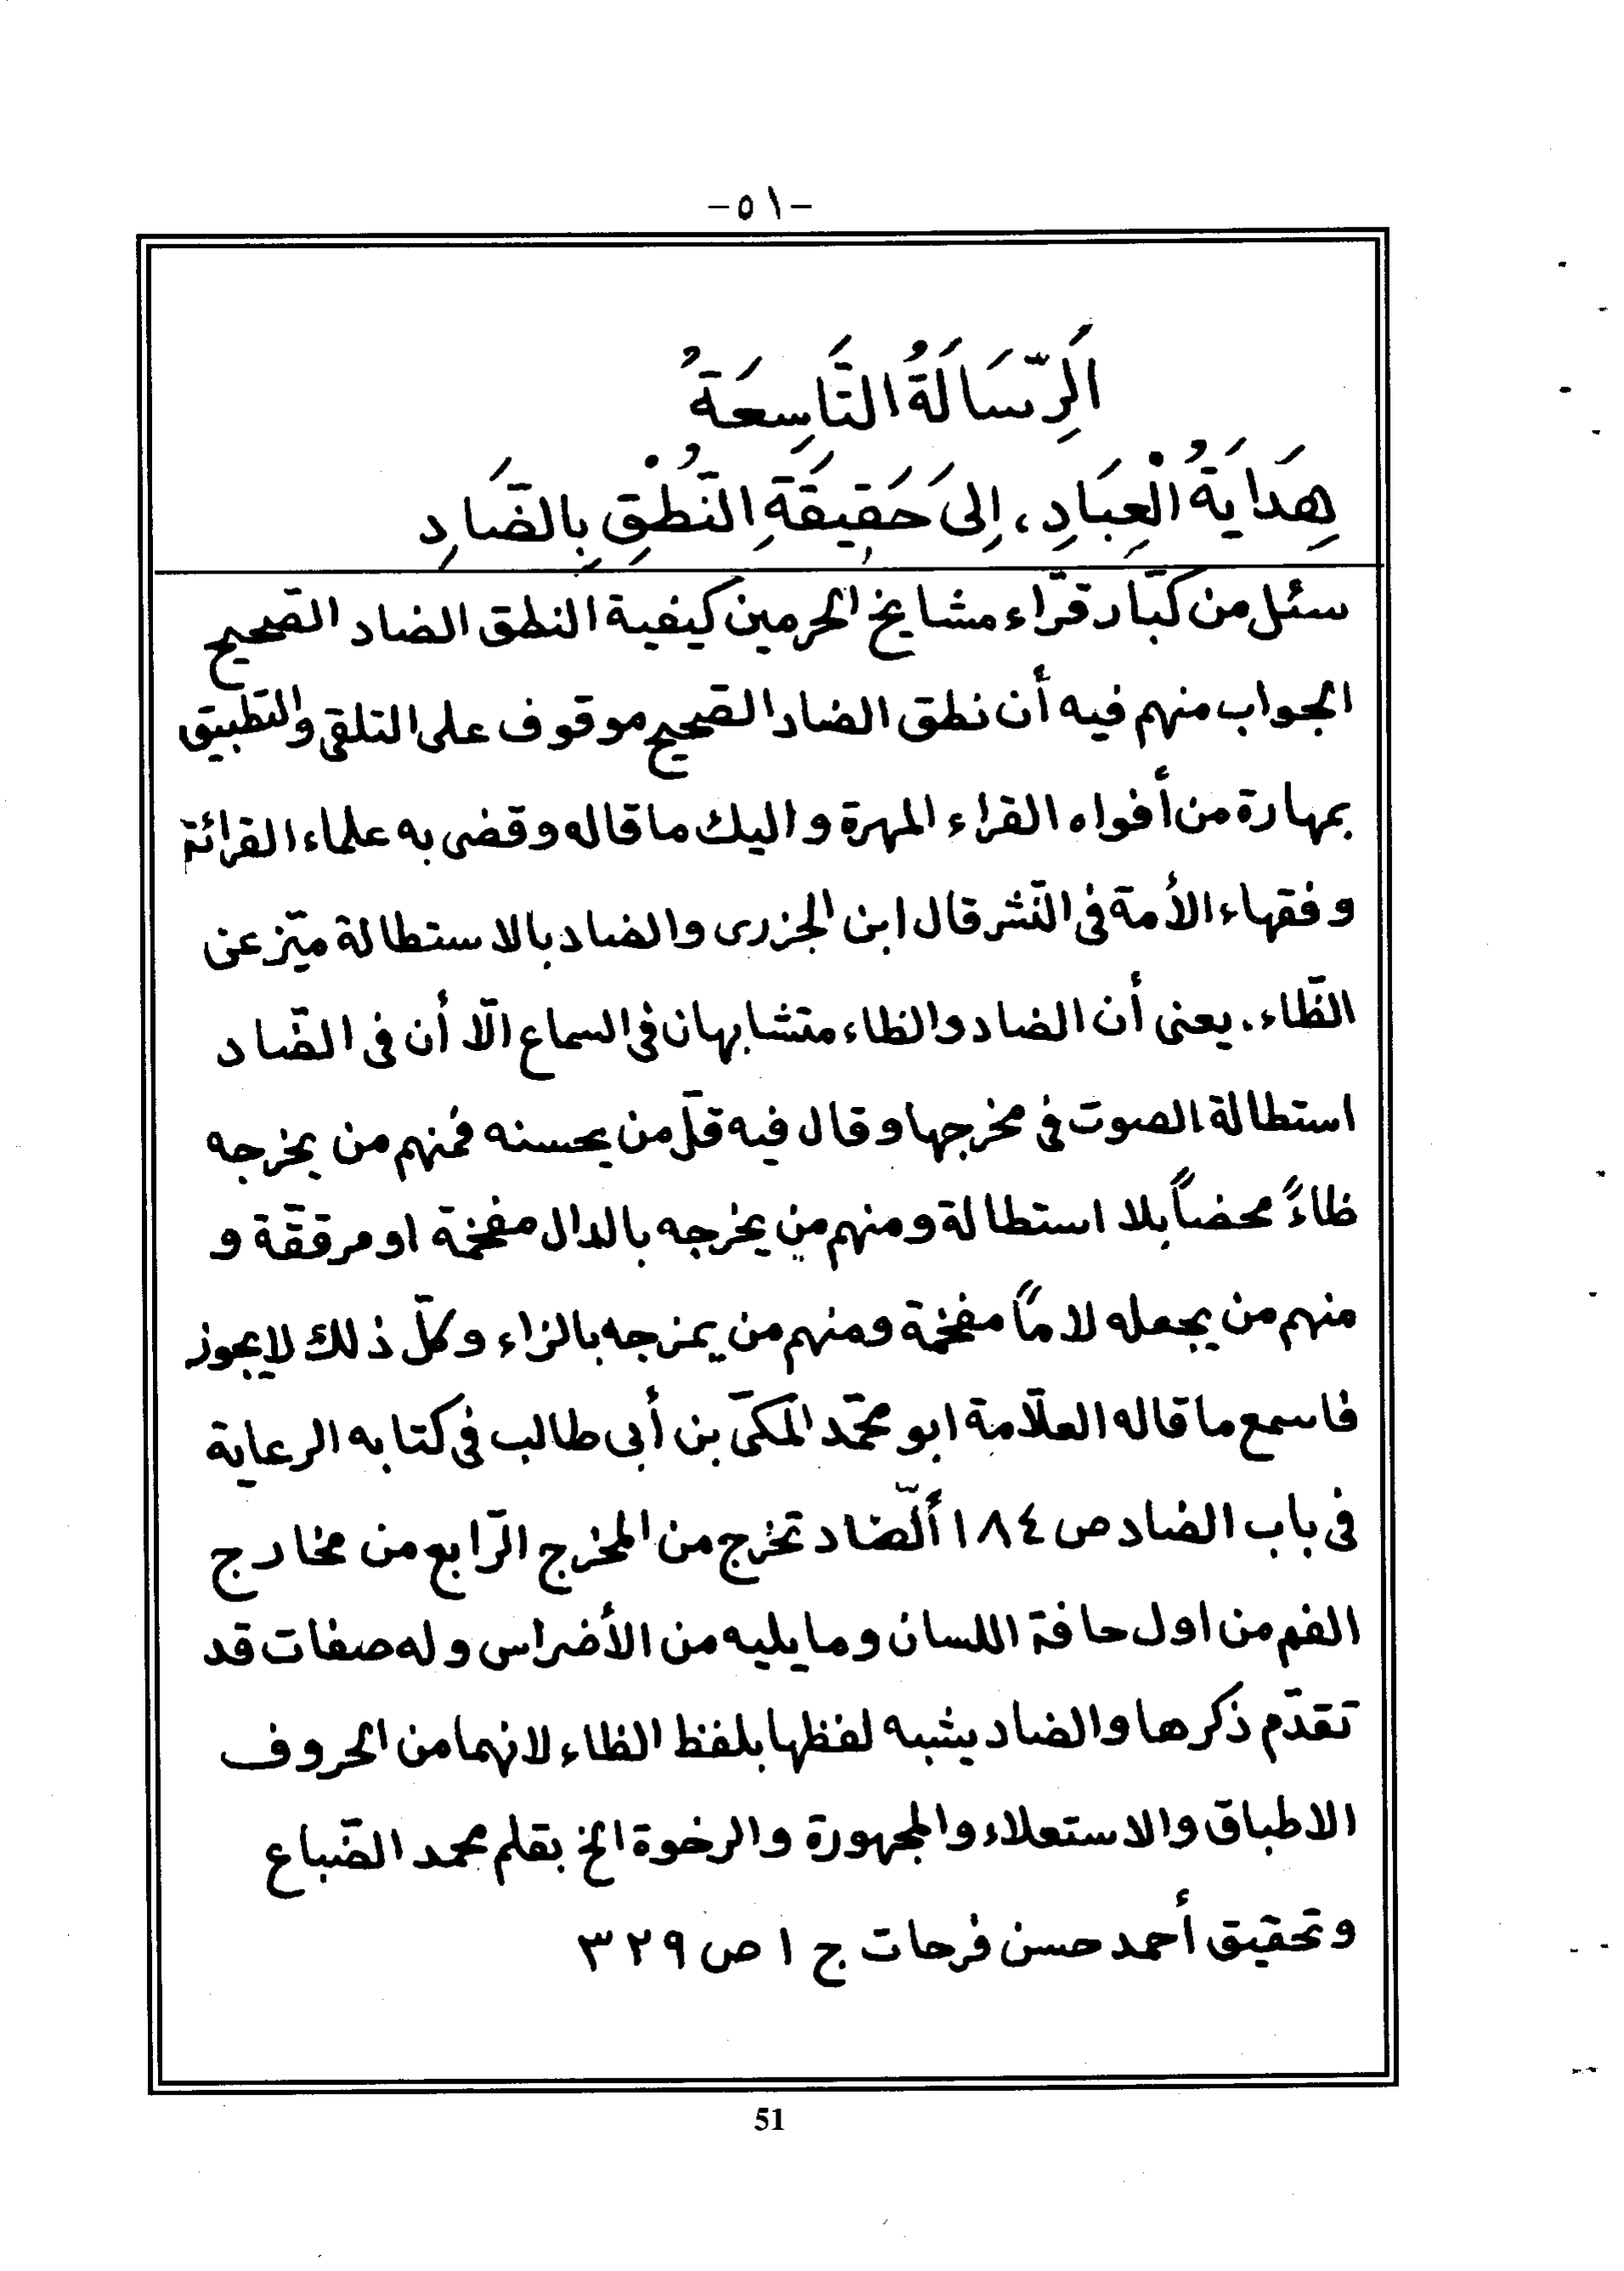 -٥١-
اَلرِّسَالَةُ التَّاسِعَةُ
هِدَايَةُ الْعِبَادِ، إِلىَ حَقِيقَةِ النُّطْقِ بِالضَّادِ
سئل من كبّار قرّاء مشايخ الحرمين كيفية النطق الضاد الصّحيح
الجواب منهم فيه أن نطق الضاد الصّحيح موقوف على التلقى والتّطبيق
بمهارة من أفواه القراء المهرة واليك ما قاله وقضى به علماء القرائة
وفقهاء الأمة فى النّشر قال ابن الجزرى والضاد بالاستطالة ميّز عن
الظّاء. يعنى أن الضاد والظاء متشابهان فى السماع الّا أن فى الضّاد
استطالة الصوت فى مخرجها وقال فيه قلّ من يحسنه فمنهم من يخرجه
ظاءً محضاً بلا استطالة ومنهم من يخرجه بالدال مفخمة او مرققّة و
منهم من يجعله لاماً مفخمة ومنهم من يمزجه بالزاء وكلّ ذلك لا يجوز
فاسمع ما قاله العلّامة ابو محمّد المكىّ بن أبى طالب فى كتابه الرعاية
فى باب الضاد ص ١٨٤ ألضّاد تخرج من المخرج الرّابع من مخارج
الفم من اول حافة اللسان وما يليه من الأضراس وله صفات قد
تقدّم ذكرها والضاد يشبه لفظها بلفظ الظاء لانهما من الحروف
الاطباق والاستعلاء والمجهورة والرخوة الخ بقلم محمد الضّباع
وتحقيق أحمد حسن فرحات ج ١ ص ٣٢٩
51